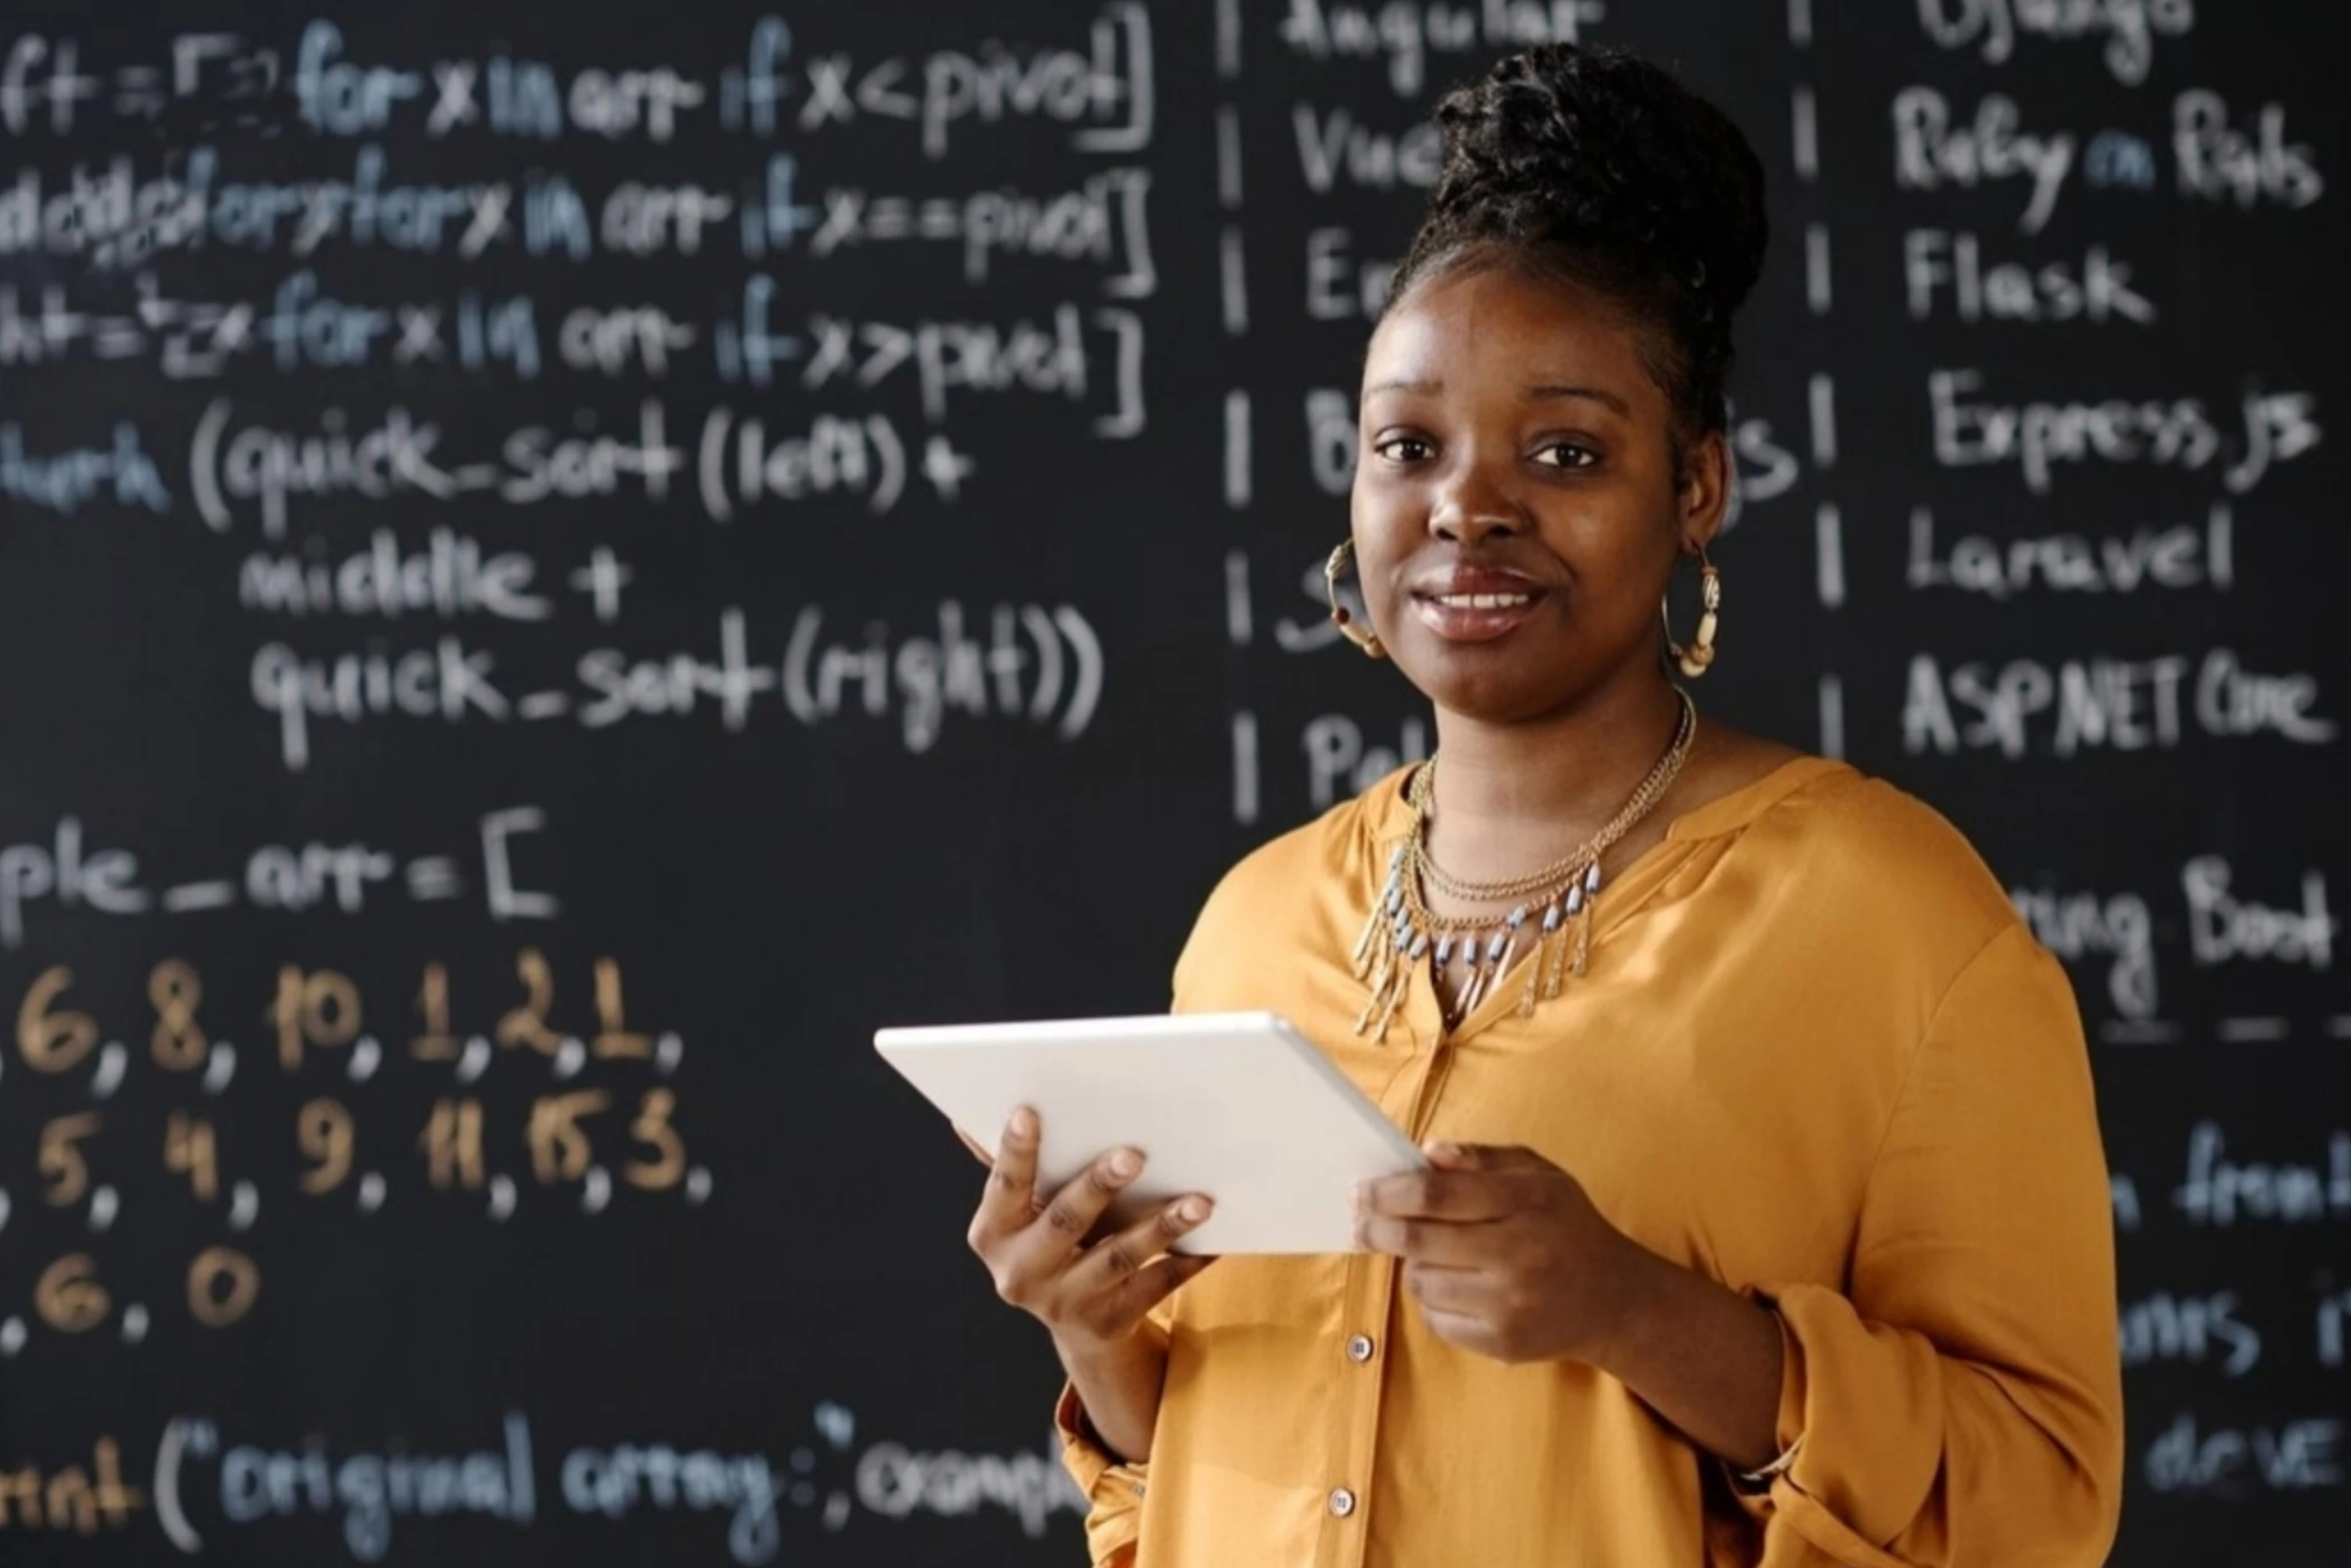 for x in arr if x < pivot]
for x in arr if x == pivot]
for x in arr if x > pivot]
(quick_sort(left) +
middle +
quick_sort(right))
ple_arr = [
6, 8, 10, 1, 2, 1,
, 5, 4, 9, 11, 15, 3,
, 6, 0
rint ("original array:", exampl
| Angular
| Vue
| E
| B js
| S
| Po
| Django
| Ruby on Rails
| Flask
| Express.js
| Laravel
| ASP.NET Core
ring Boot
front